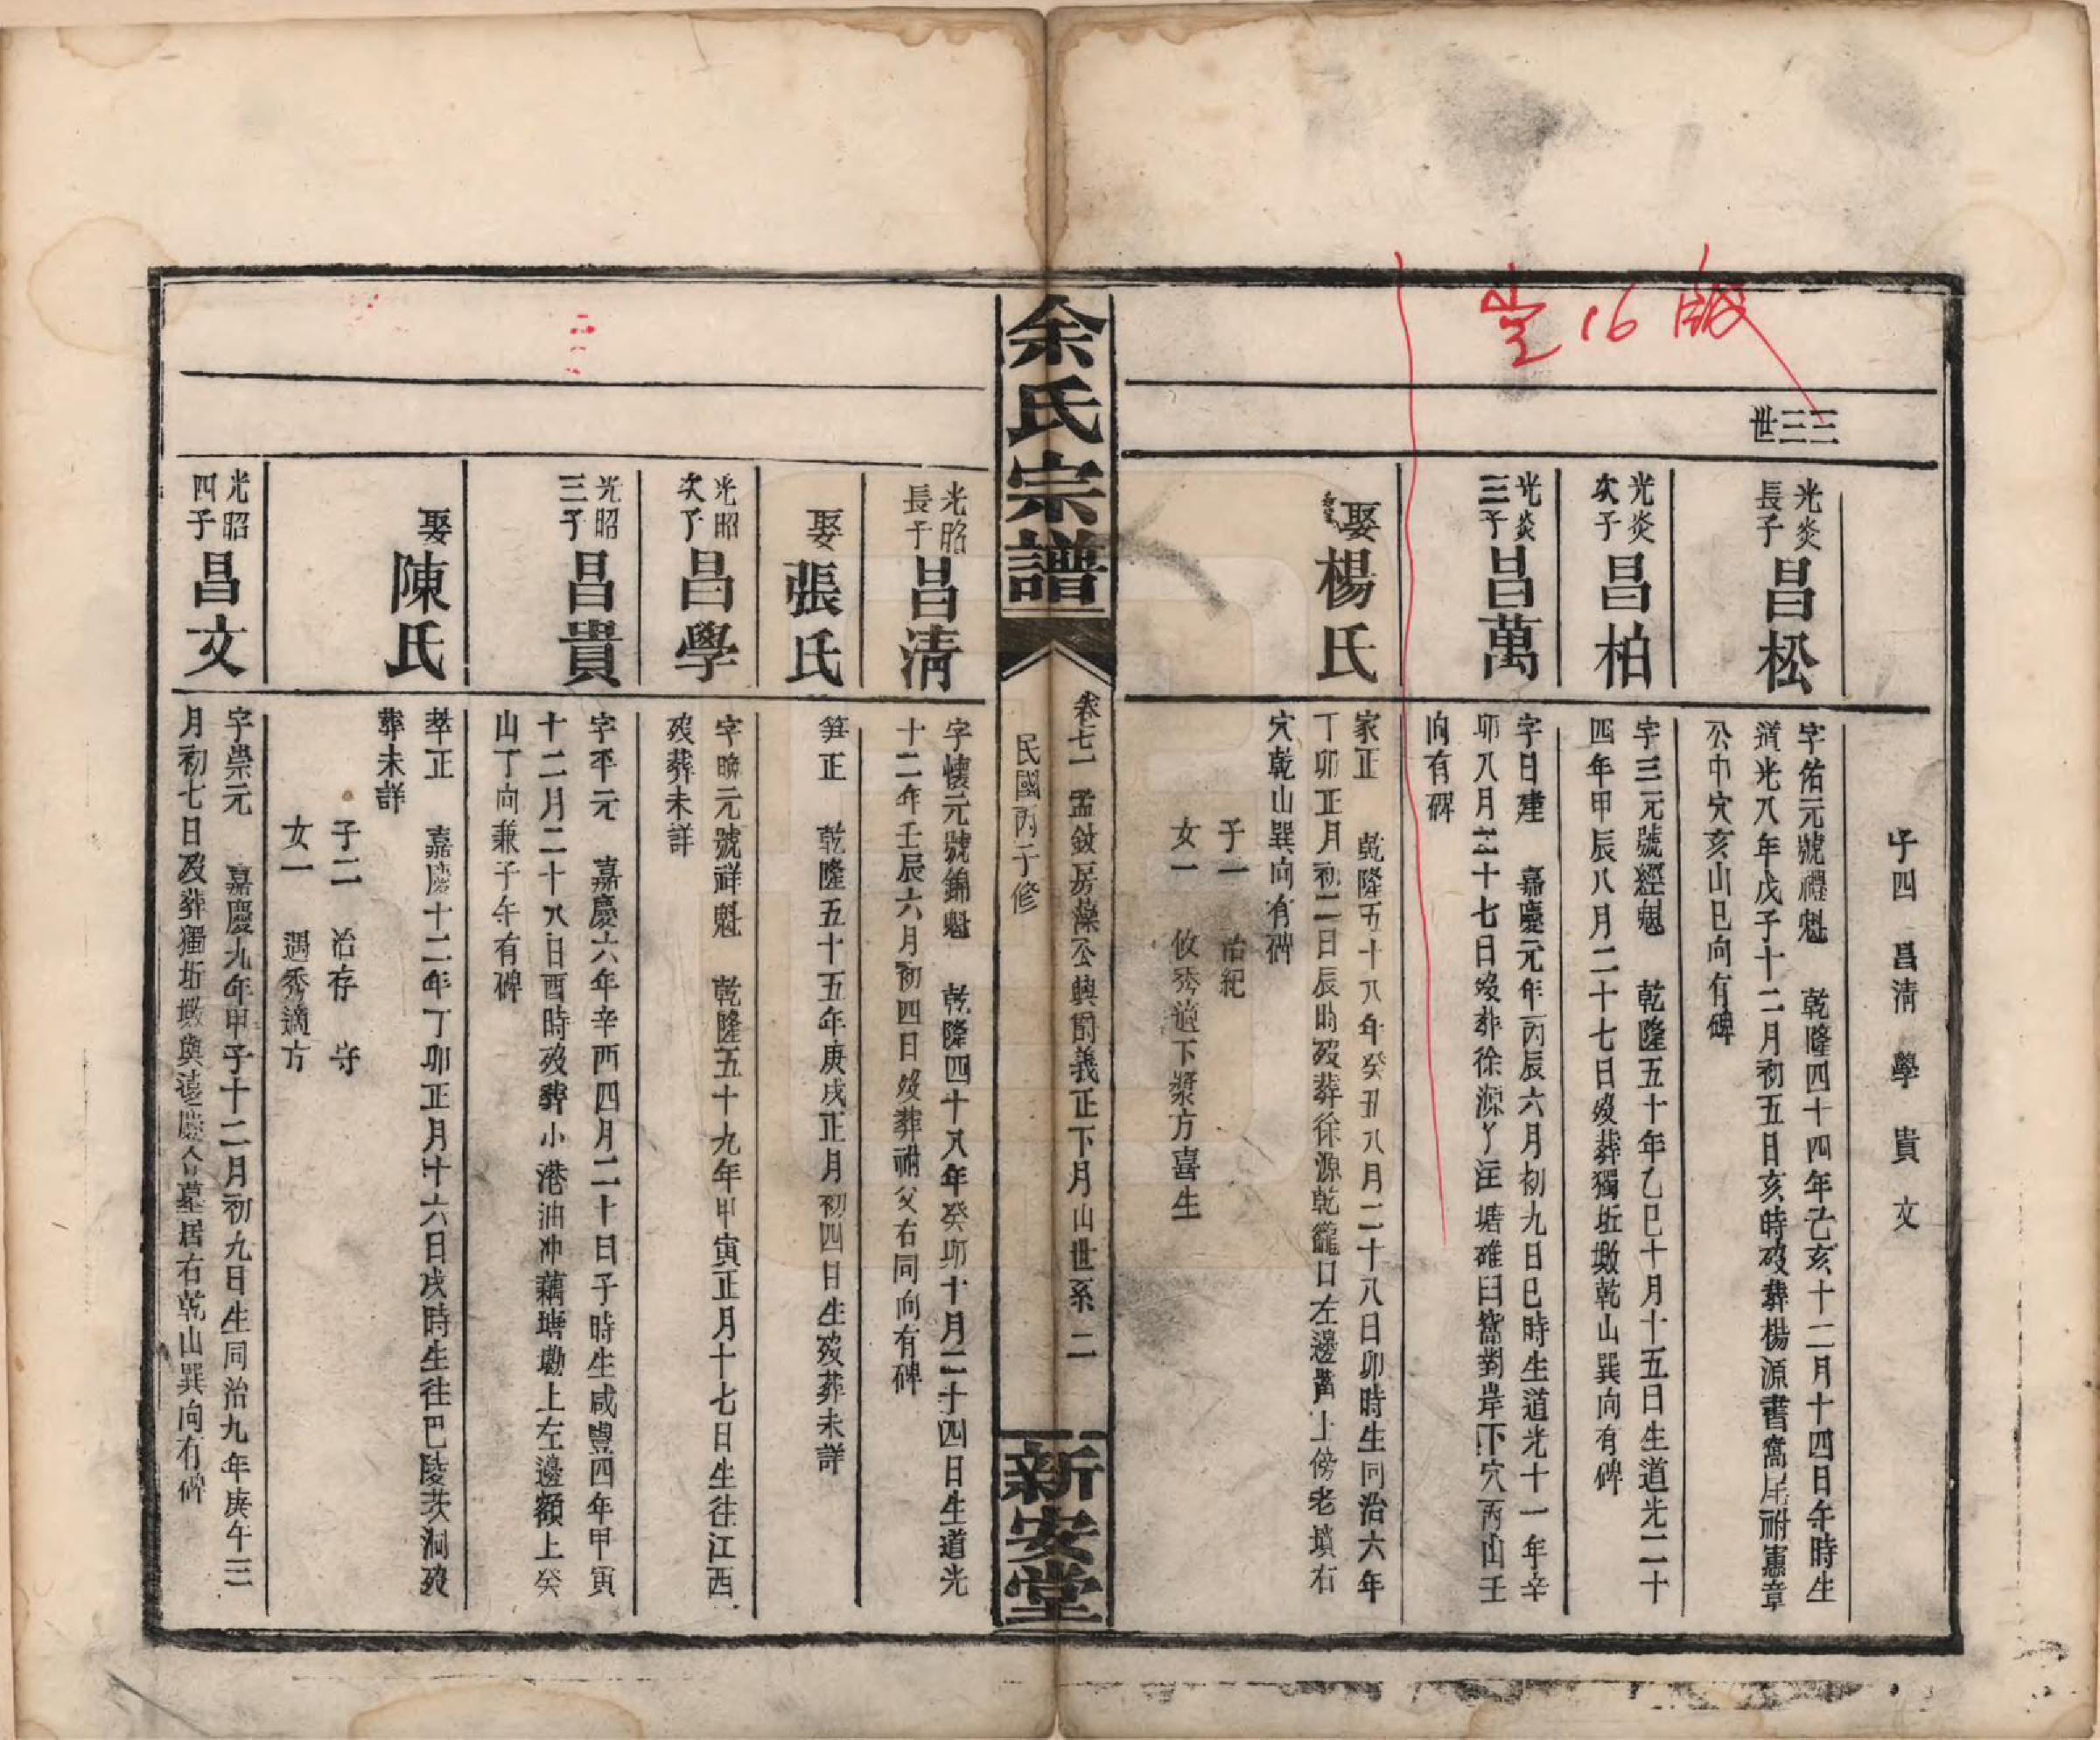 子四　昌清　學　貴　文
三三世
光炎長子　昌松
字佑元號禮魁　乾隆四十四年己亥十二月十四日午時生
道光八年戊子十二月初五日亥時歿葬楊源書窩尾祔憲章
公中穴亥山巳向有碑
光炎次子　昌柏
字三元號經魁　乾隆五十年乙巳十月十五日生道光二十
四年甲辰八月二十七日歿葬獨坵墩乾山巽向有碑
光炎三子　昌萬
字日建　嘉慶元年丙辰六月初九日巳時生道光十一年辛
卯八月二十七日歿葬徐源丫汪塘碓臼窩對岸下穴丙山壬
向有碑
娶　楊氏
家正　乾隆五十八年癸丑八月二十八日卯時生同治六年
丁卯正月初二日辰時歿葬徐源乾籠口左邊嘴上傍老墳右
穴乾山巽向有碑
子一　治紀
女一　攸秀適下漿方喜生
余氏宗譜
卷七一　孟敘房藻公輿爵義正下月山世系　二
民國丙子修
新安堂
光昭長子　昌清
字懷元號錦魁　乾隆四十八年癸卯十月二十四日生道光
十二年壬辰六月初四日歿葬祔父右同向有碑
娶　張氏
筭正　乾隆五十五年庚戌正月初四日生歿葬未詳
光昭次子　昌學
字晩元號祥魁　乾隆五十九年甲寅正月十七日生往江西
歿葬未詳
光昭三子　昌貴
字平元　嘉慶六年辛酉四月二十日子時生咸豐四年甲寅
十二月二十八日酉時歿葬小港油冲藕塘墈上左邊額上癸
山丁向兼子午有碑
娶　陳氏
莘正　嘉慶十二年丁卯正月十六日戌時生往巴陵茨洞歿
葬未詳
子二　治存　守
女一　遇秀適方
光昭四子　昌文
字崇元　嘉慶九年甲子十二月初九日生同治九年庚午三
月初七日歿葬獨坵墩與遠慶合墓居右乾山巽向有碑
16